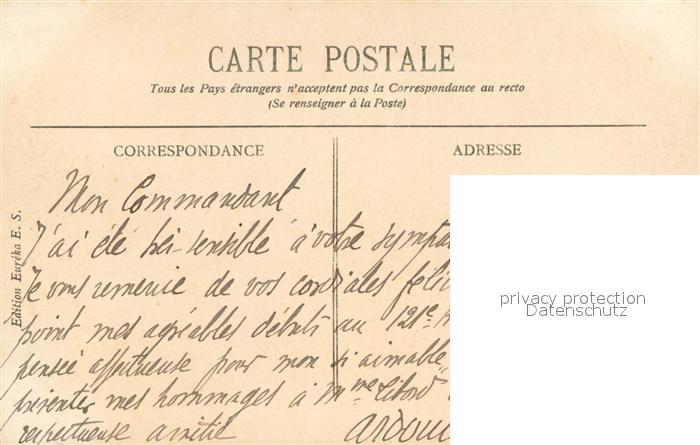 CARTE POSTALE
Tous les Pays étrangers n'acceptent pas la Correspondance au recto
(Se renseigner à la Poste)
CORRESPONDANCE
ADRESSE
Edition Euréka E. S.
Mon Commandant
J'ai été très sensible à votre sympa
Je vous remercie de vos cordiales félic
point mes agréables débuts au 121e
pensée affectueuse pour mon si aimable
présenter mes hommages à Mme
respectueuse amitié
privacy protection
Datenschutz